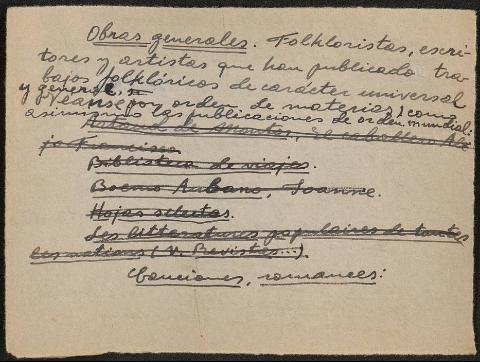 Obras generales. Folkloristas, escri-
tores y artistas que han publicado tra-
bajos folklóricos de carácter universal
y general.
Véanse por orden de materias, como
asimismo las publicaciones de orden mundial:
Artaud de Montor, El caballero Ale-
jo Francisco
Biblioteca de viajes.
Boemo Aubano, Joanne.
Hojas selectas.
Les littératures populaires de toutes
les nations (V. Revistas...).
Canciones, romances: